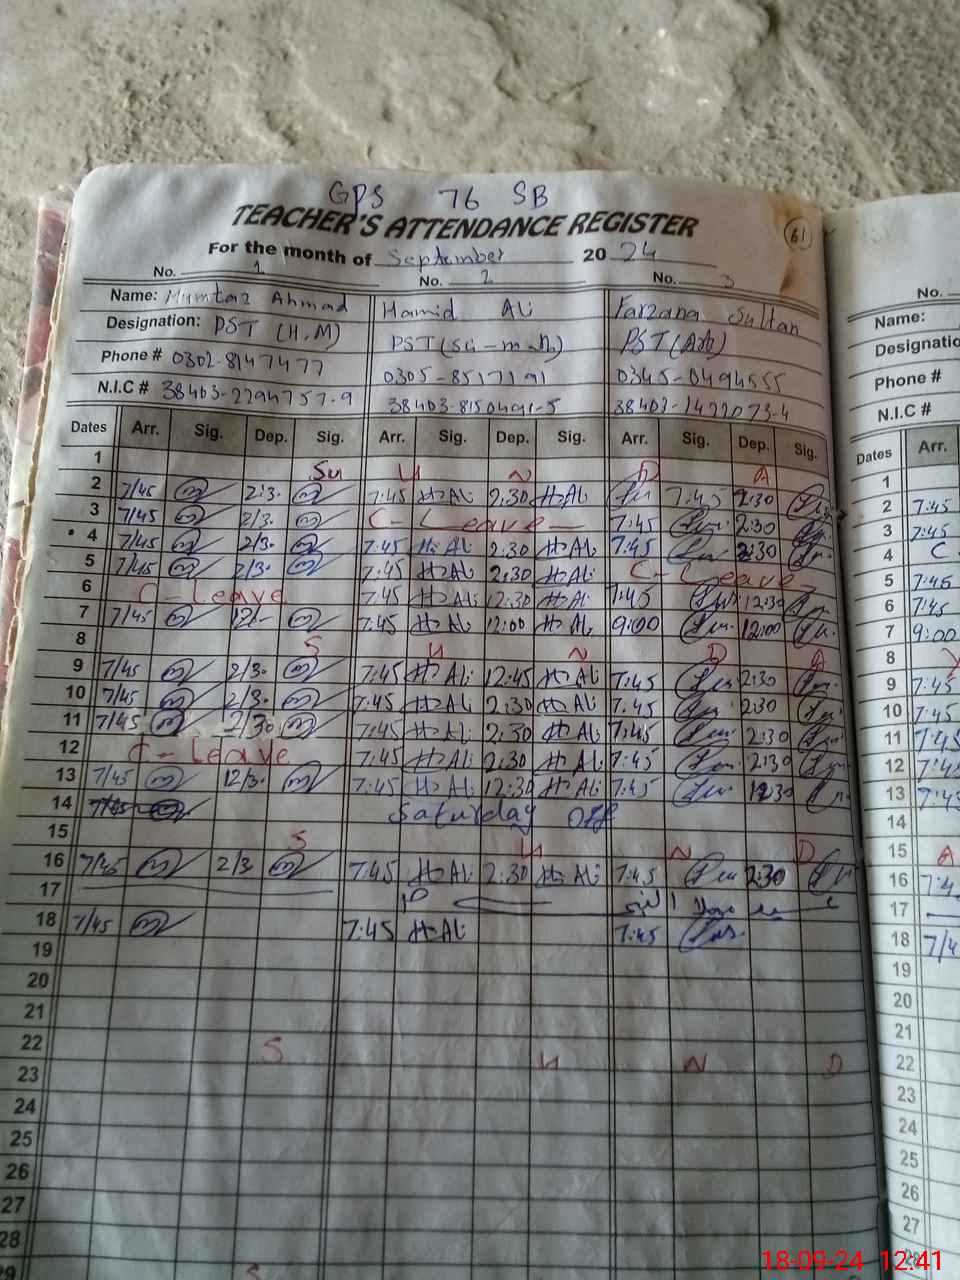 GPS 76 SB
TEACHER'S ATTENDANCE REGISTER
61
For the month of September 2024
No. 1 No. 2 No. 3
Name: Mumtaz Ahmad Hamid Ali Farzana Sultan
Designation: PST (H.M) PST
Phone # 0302-8147477 0305-8517191 0345-0494555
N.I.C # 38403-2294757-9 38403-8150491-5 38403-1422073-4
Dates Arr. Sig. Dep. Sig. Arr. Sig. Dep. Sig. Arr. Sig. Dep. Sig.
1 Su N D A
2 7/45 2:3. 7:45 H Ali 2:30 H Ali 7:45 2:30
3 7/45 2/3. C-Leave 7:45 2:30
4 7/45 2/3. 7:45 H Ali 2:30 H Ali 7:45 2:30
5 7/45 2/3. 7:45 H Ali 2:30 H Ali C-Leave
6 C-Leave 7:45 H Ali 12:30 H Ali 7:45 12:30
7 7/45 12/- 7:45 H Ali 12:00 H Ali 9:00 12:00
8 S U N D A
9 7/45 2/3. 7:45 H Ali 12:45 H Ali 7:45 2:30
10 7/45 2/3. 7:45 H Ali 2:30 H Ali 7:45 2:30
11 7/45 2/30 7:45 H Ali 2:30 H Ali 7:45 2:30
12 C-Leave 7:45 H Ali 2:30 H Ali 7:45 2:30
13 7/45 12/3. 7:45 H Ali 12:30 H Ali 7:45 12:30
14 7/45 Saturday Off
15 S U N D
16 7/45 2/3 7:45 H Ali 2:30 H Ali 7:45 2:30
17
18 7/45 7:45 H Ali 7:45
19
20
21
22 S U N D
23
24
25
26
27
28
29 S
No.
Name:
Designatio
Phone #
N.I.C #
Dates Arr.
1
2 7:45
3 7:45
4 C
5 7:45
6 7:45
7 9:00
8
9 7:45
10 7:45
11 7:45
12 7:45
13 7:45
14
15 A
16 7:4
17
18 7/4
19
20
21
22
23
24
25
26
27
28
18-09-24 12:41